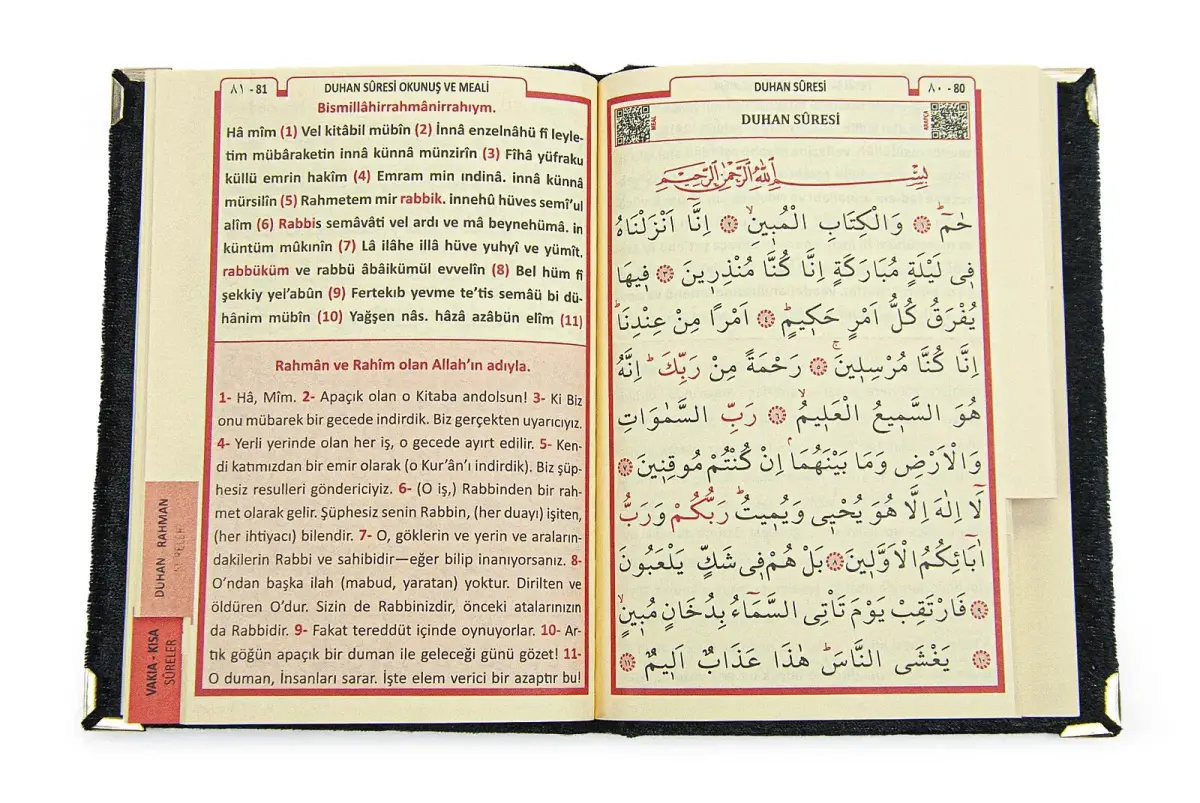 ٨١ - 81
DUHAN SÛRESİ OKUNUŞ VE MEALİ
Bismillâhirrahmânirrahıym.
Hâ mîm (1) Vel kitâbil mübîn (2) İnnâ enzelnâhü fî leyle-
tim mübâraketin innâ künnâ münzirîn (3) Fîhâ yüfraku
küllü emrin hakîm (4) Emram min ındinâ. innâ künnâ
mürsilîn (5) Rahmetem mir rabbik. innehû hüves semî’ul
alîm (6) Rabbis semâvâti vel ardı ve mâ beynehümâ. in
küntüm mûkınîn (7) Lâ ilâhe illâ hüve yuhyî ve yümît.
rabbüküm ve rabbü âbâikümül evvelîn (8) Bel hüm fî
şekkiy yel’abûn (9) Fertekıb yevme te’tis semâü bi dü-
hânim mübîn (10) Yağşen nâs. hâzâ azâbün elîm (11)
Rahmân ve Rahîm olan Allah’ın adıyla.
1- Hâ, Mîm. 2- Apaçık olan o Kitaba andolsun! 3- Ki Biz
onu mübarek bir gecede indirdik. Biz gerçekten uyarıcıyız.
4- Yerli yerinde olan her iş, o gecede ayırt edilir. 5- Ken-
di katımızdan bir emir olarak (o Kur’ân’ı indirdik). Biz şüp-
hesiz resulleri göndericiyiz. 6- (O iş,) Rabbinden bir rah-
met olarak gelir. Şüphesiz senin Rabbin, (her duayı) işiten,
(her ihtiyacı) bilendir. 7- O, göklerin ve yerin ve araların-
dakilerin Rabbi ve sahibidir—eğer bilip inanıyorsanız. 8-
O’ndan başka ilah (mabud, yaratan) yoktur. Dirilten ve
öldüren O’dur. Sizin de Rabbinizdir, önceki atalarınızın
da Rabbidir. 9- Fakat tereddüt içinde oynuyorlar. 10- Ar-
tık göğün apaçık bir duman ile geleceği günü gözet! 11-
O duman, İnsanları sarar. İşte elem verici bir azaptır bu!
DUHAN RAHMAN
SÛRELER
VAKIA - KISA
SÛRELER
DUHAN SÛRESİ
٨٠ - 80
MEAL
DUHAN SÛRESİ
ARAPÇA
بِسْمِ اللهِ الرَّحْمٰنِ الرَّحِيمِ
حٰمٓ ﴿١﴾ وَالْكِتَابِ الْمُبِينِۙ ﴿٢﴾ اِنَّٓا اَنْزَلْنَاهُ
فِي لَيْلَةٍ مُبَارَكَةٍ اِنَّا كُنَّا مُنْذِرِينَ ﴿٣﴾ فِيهَا
يُفْرَقُ كُلُّ اَمْرٍ حَكِيمٍۙ ﴿٤﴾ اَمْرًا مِنْ عِنْدِنَاۜ
اِنَّا كُنَّا مُرْسِلِينَۚ ﴿٥﴾ رَحْمَةً مِنْ رَبِّكَۜ اِنَّهُ
هُوَ السَّمِيعُ الْعَلِيمُۙ ﴿٦﴾ رَبِّ السَّمٰوَاتِ
وَالْاَرْضِ وَمَا بَيْنَهُمَاۢ اِنْ كُنْتُمْ مُوقِنِينَ ﴿٧﴾
لَٓا اِلٰهَ اِلَّا هُوَ يُحْيِي وَيُمِيتُۜ رَبُّكُمْ وَرَبُّ
اٰبَٓائِكُمُ الْاَوَّلِينَ ﴿٨﴾ بَلْ هُمْ فِي شَكٍّ يَلْعَبُونَ
﴿٩﴾ فَارْتَقِبْ يَوْمَ تَأْتِي السَّمَٓاءُ بِدُخَانٍ مُبِينٍۙ
﴿١٠﴾ يَغْشَى النَّاسَۜ هٰذَا عَذَابٌ اَلِيمٌ ﴿١١﴾